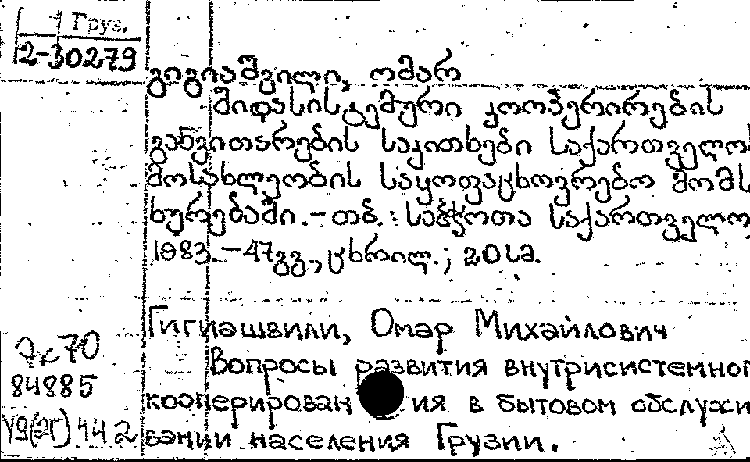 Груз.
2-30279
გიგიაშვილი, ომარ
შიდასისტემური კოოპერირების
განვითარების საკითხები საქართველოს
მოსახლეობის საყოფაცხოვრებო მომს
ხურებაში.-თბ.: საბჭოთა საქართველო,
1983.-47გვ., ცხრილ.; 20სმ.
Гигиашвили, Омар Михайлович
Вопросы развития внутрисистемног
кооперирован ия в бытовом обслужи
84885
вании населения Грузии.